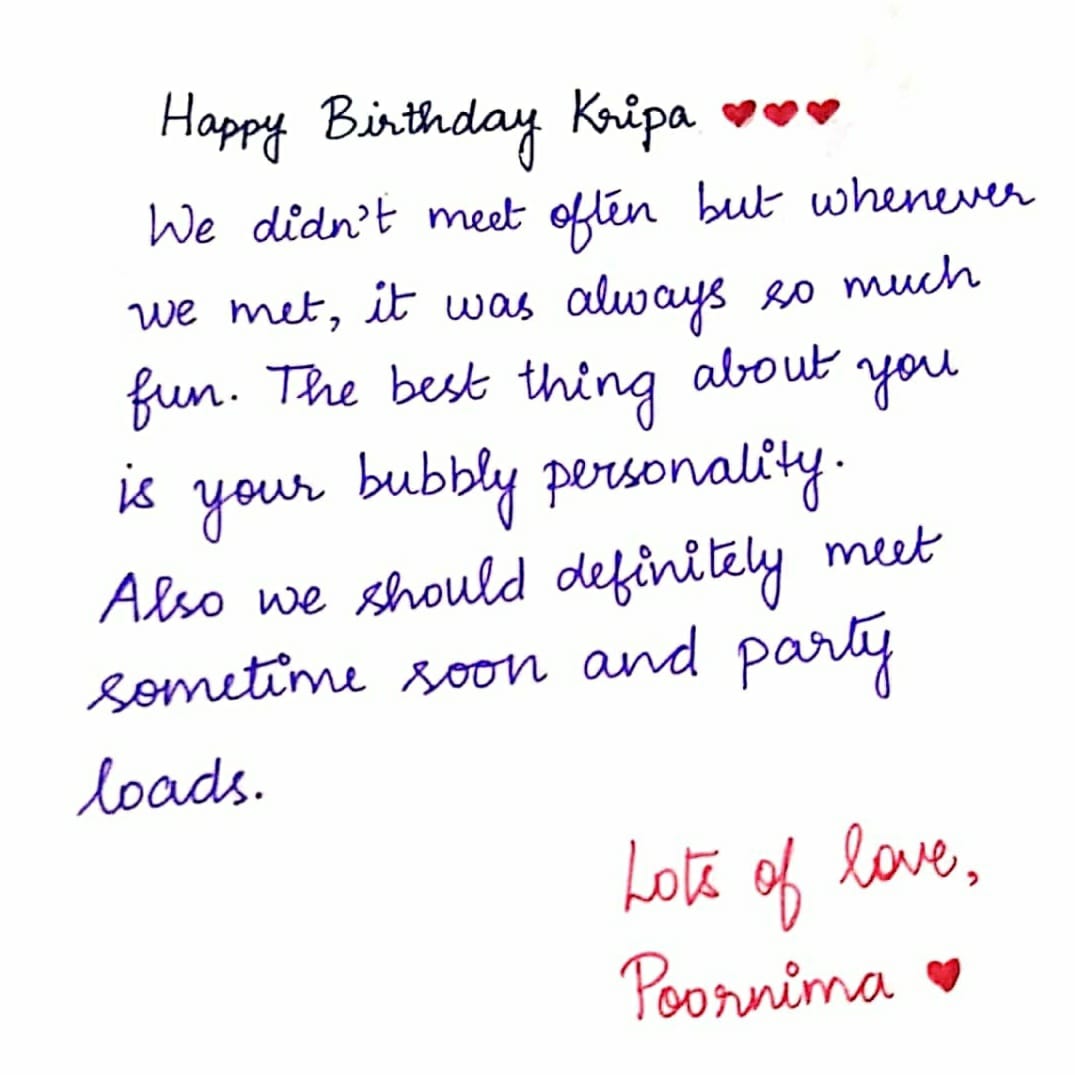 Happy Birthday Kripa ❤❤❤
We didn't meet often but whenever
we met, it was always so much
fun. The best thing about you
is your bubbly personality.
Also we should definitely meet
sometime soon and party
loads.
Lots of love,
Poornima ❤